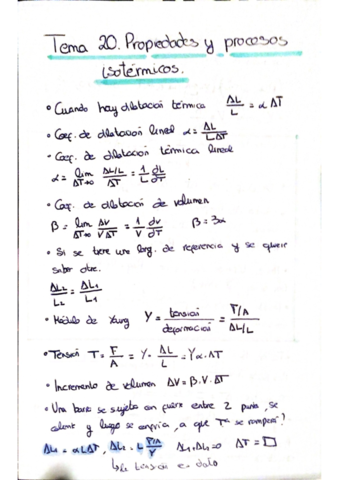 Tema 20. Propiedades y procesos
isotérmicos.
• Cuando hay dilatación térmica ΔL/L = α ΔT
• Coef. de dilatación lineal α = ΔL/LΔT
• Coef. de dilatación térmica lineal
α = lim ΔT→0 (ΔL/L)/ΔT = 1/L dL/dT
• Coef. de dilatación de volumen
β = lim ΔT→0 ΔV/VΔT = 1/V dV/dT β = 3α
• Si se tiene una long. de referencia y se quiere
saber otra.
ΔL2/L2 = ΔL1/L1
• Módulo de Young Y = tensión/deformación = (F/A)/(ΔL/L)
• Tensión T = F/A = Y · ΔL/L = Y α · ΔT
• Incremento de volumen ΔV = β · V · ΔT
• Una barra se sujeta con fuerza entre 2 puntos, se
calienta y luego se enfría, a que Tª se romperá?
ΔL1 = α L ΔT, ΔL2 = L (F/A)/Y ΔL1 + ΔL2 = 0 ΔT = □
↳ la tensión es dato